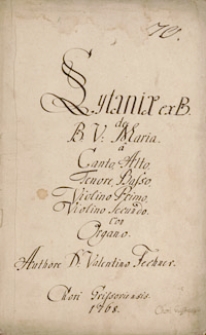 70.
Lytaniæ ex B.
de
B. V. Maria.
a
Canto, Alto,
Tenore, Basso,
Violino Primo,
Violino Secundo.
con
Organo.
Authore D. Valentino Fechner.
Chori Grissoviensis.
1768.